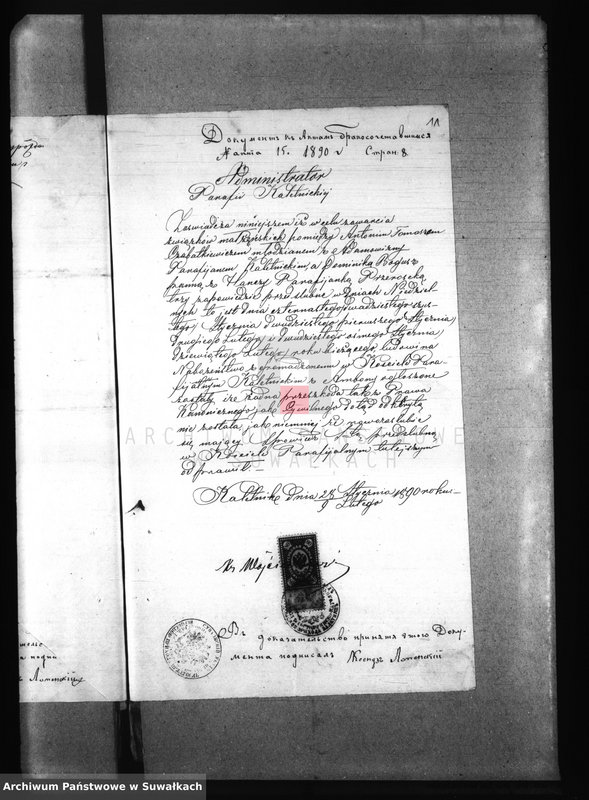 11
Документъ къ Актамъ Бракосочетавшихся
№ акта 15. 1890 г Стран. 8
Administrator
Parafii Kaletnickiej
Zaświadcza niniejszem iż w celu zawarcia
związków małżeńskich pomiędzy Antonim Tomaszem
młodzianem z Adamowizny
Parafijanem Kaletnickim, a Dominiką Bogusz
panną z Hańczy Parafijanką Przerośką
trzy zapowiedzie przedślubne w dniach Niedziel
nych to jest dnia czternastego/dwudziestego szós
tego/ Stycznia dwudziestego pierwszego Stycznia/
drugiego Lutego i dwudziestego ósmego Stycznia/
dziewiątego Lutego roku bieżącego ludowi na
Nabożeństwo zgromadzonemu w Kościele Para
fijalnym Kaletnickim z Ambony ogłoszone
zostały, i że żadna przeszkoda tak z Prawa
Kanonicznego jak Cywilnego dotąd odkrytą
nie została, jak niemniej że nowozaślubić
się mający Spowiedź Stą przedślubną
w Kościele Parafijalnym tutejszym
odprawił
Kaletnik dnia 28 Stycznia 1890 roku
9 Lutego
Ks Wojci
Въ доказательство принятія этого Доку-
мента подписалъ Ксендзъ Ломскій
ARCHIWUM PAŃSTWOWE
W SUWAŁKACH
Archiwum Państwowe w Suwałkach